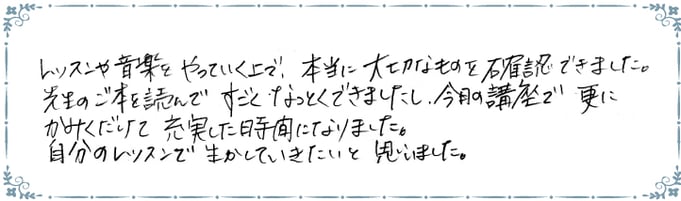 レッスンや音楽を やっていく上で、本当に 大切なものを 確認できました。
先生のご本を読んで すごく なっとくできましたし、今日の講座で 更に
かみくだけて 充実した時間になりました。
自分のレッスンで 生かしていきたいと 思いました。